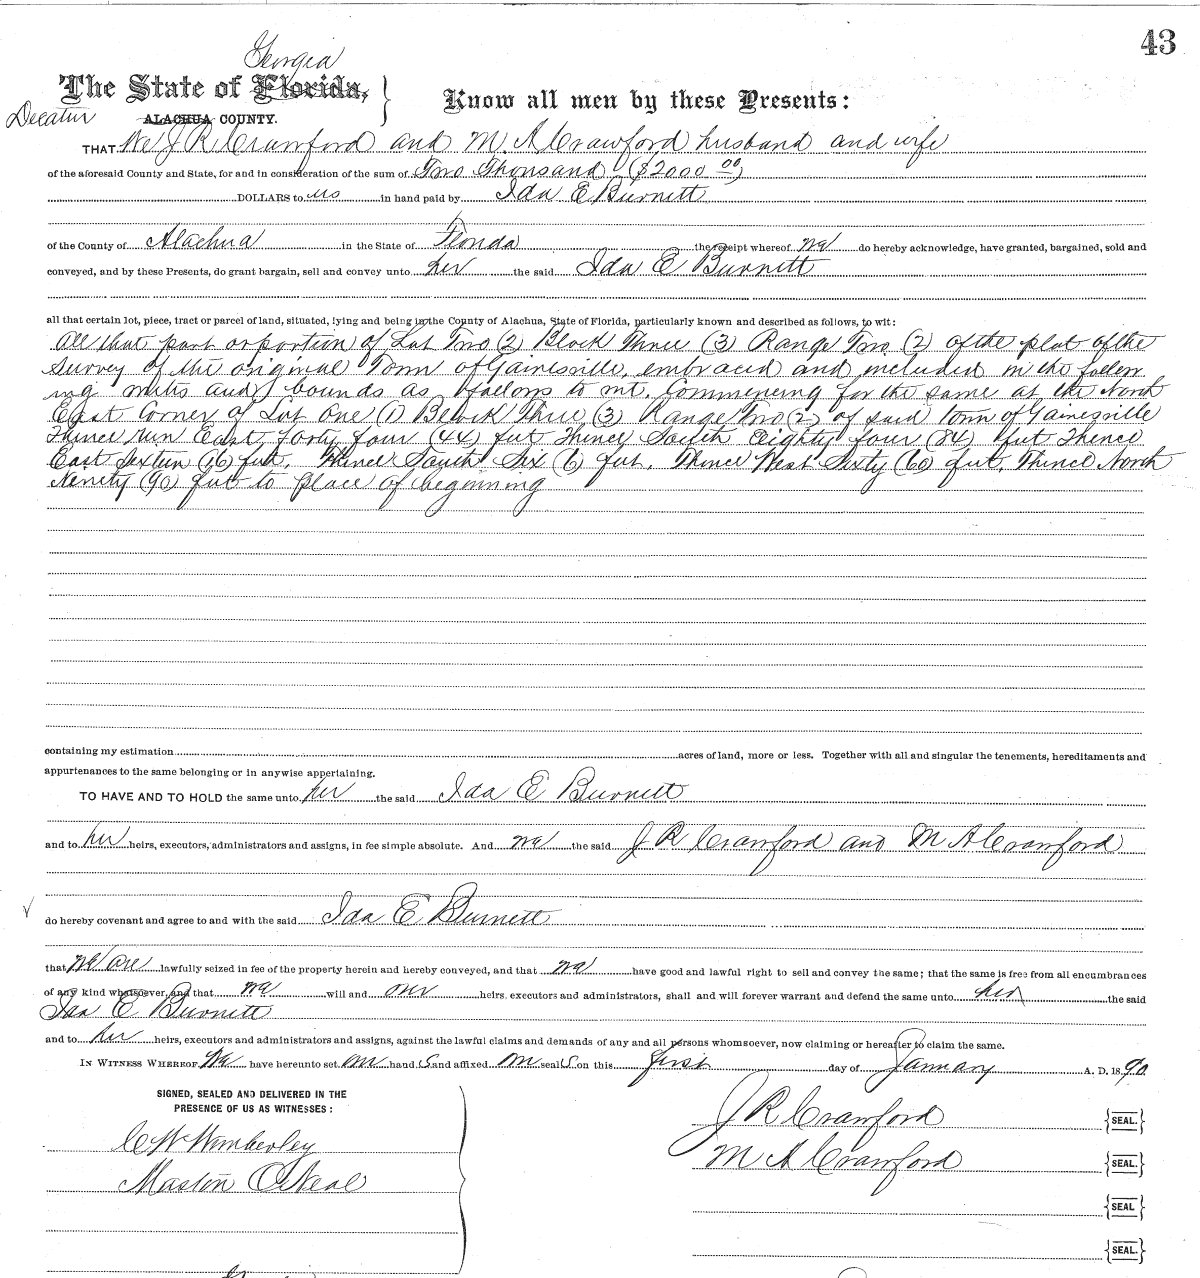 43
Georgia
The State of Florida,
Decatur ALACHUA COUNTY.
Know all men by these Presents:
THAT We J R Crawford and M A Crawford husband and wife
of the aforesaid County and State, for and in consideration of the sum of Two Thousand ($2000 00)
DOLLARS to us in hand paid by Ida E Burnett
of the County of Alachua in the State of Florida the receipt whereof we do hereby acknowledge, have granted, bargained, sold and
conveyed, and by these Presents, do grant bargain, sell and convey unto her the said Ida E Burnett
all that certain lot, piece, tract or parcel of land, situated, lying and being in the County of Alachua, State of Florida, particularly known and described as follows, to wit:
All that part or portion of Lot Two (2) Block Three (3) Range Two (2) of the plat of the
Survey of the original Town of Gainesville, embraced and included in the follow
ing metes and bounds as follows to wit. Commencing for the same at the North
East corner of Lot One (1) Block Three (3) Range Two (2) of said Town of Gainesville
Thence run East Forty four (44) feet Thence South Eighty four (84) feet Thence
East Sixteen (16) feet. Thence South Six (6) feet. Thence West Sixty (60) feet. Thence North
Ninety (90) feet to place of beginning
containing my estimation acres of land, more or less. Together with all and singular the tenements, hereditaments and
appurtenances to the same belonging or in anywise appertaining.
TO HAVE AND TO HOLD the same unto her the said Ida E Burnett
and to her heirs, executors, administrators and assigns, in fee simple absolute. And we the said J R Crawford and M A Crawford
do hereby covenant and agree to and with the said Ida E Burnett
that we are lawfully seized in fee of the property herein and hereby conveyed, and that we have good and lawful right to sell and convey the same; that the same is free from all encumbrances
of any kind whatsoever, and that we will and our heirs, executors and administrators, shall and will forever warrant and defend the same unto her the said
Ida E Burnett
and to her heirs, executors and administrators and assigns, against the lawful claims and demands of any and all persons whomsoever, now claiming or hereafter to claim the same.
IN WITNESS WHEREOF We have hereunto set our hands and affixed our seals on this first day of January A. D. 1890
SIGNED, SEALED AND DELIVERED IN THE
PRESENCE OF US AS WITNESSES:
C W Wimberley
Maston O'Neal
J R Crawford {SEAL.}
M A Crawford {SEAL.}
{SEAL}
{SEAL}